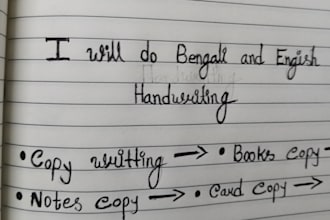 I will do Bengali and Engish
Handwriting
• Copy writting → • Books copy →
• Notes copy → • Card copy →